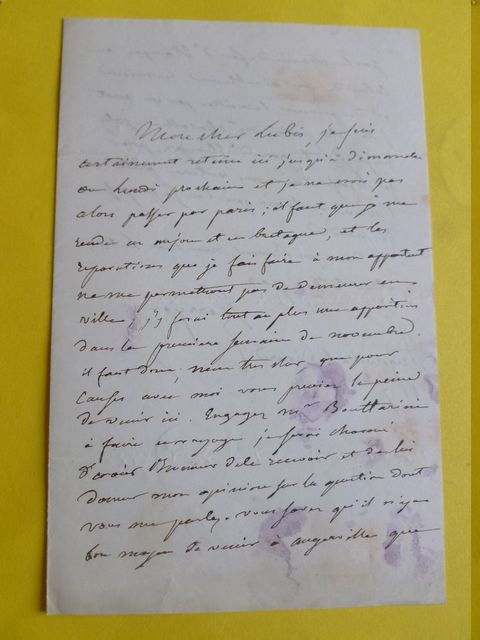 Mon cher Lubis, je suis
certainement retenu ici jusqu'à dimanche
ou lundi prochain et je ne crois pas
alors passer par paris; il faut que je me
rende en anjou et en bretagne, et les
réparations que je fais faire à mon appartemt
ne me permettront pas de demeurer en
ville, j'y ferai tout au plus une apparition
dans la première semaine de novembre.
il faut donc, mon très cher que pour
causer avec moi vous preniez la peine
de venir ici. Engagez mr
à faire ce voyage je serai charmé
d'avoir l'honneur de le recevoir et de lui
donner mon opinion sur la question dont
vous me parlez. vous savez qu'il n'y a
bon moyen de venir à augerville que